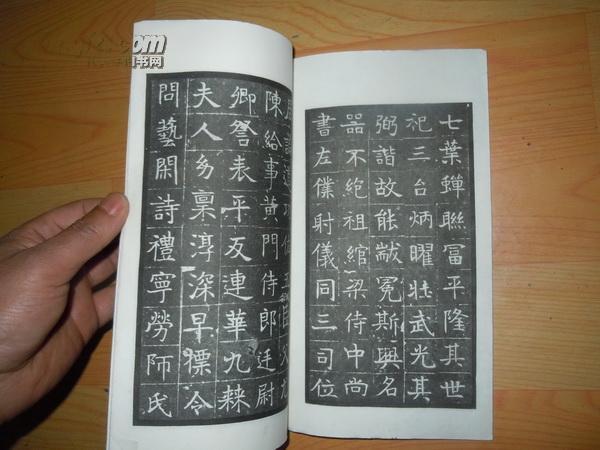 七葉蟬聯冨平隆其世
祀三台炳曜壯武光其
弼諧故能黻冕斯興名
器不絶祖綰梁侍中尚
書左僕射儀同三司位
陳給事黃門侍郎廷尉
卿詧表平反連華九棘
夫人幼稟淳深早標令
問藝閑詩禮寧勞師氏
.com
旧书网